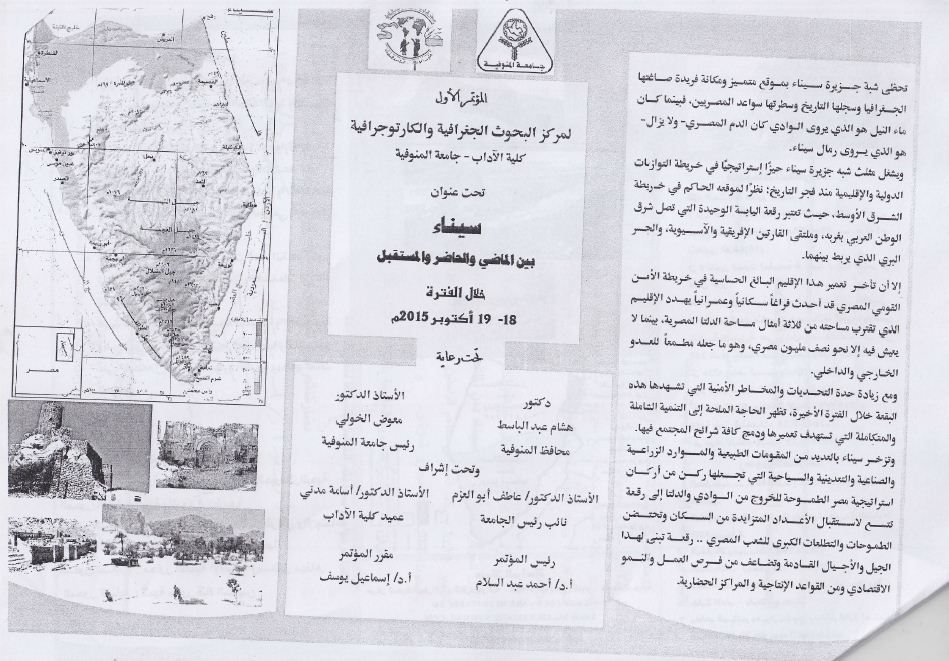 تحظى شبة جزيرة سيناء بموقع متميز ومكانة فريدة صاغتها
الجغرافيا وسجلها التاريخ وسطرتها سواعد المصريين، فبينما كان
ماء النيل هو الذي يروى الوادي كان الدم المصري- ولا يزال-
هو الذي يروى رمال سيناء.
ويشغل مثلث شبه جزيرة سيناء حيزًا إستراتيجيًا في خريطة التوازنات
الدولية والإقليمية منذ فجر التاريخ؛ نظرًا لموقعه الحاكم في خريطة
الشرق الأوسط، حيث تعتبر رقعة اليابسة الوحيدة التي تصل شرق
الوطن العربي بغربه، وملتقى القارتين الإفريقية والآسيوية، والجسر
البري الذي يربط بينهما.
إلا أن تأخر تعمير هذا الإقليم البالغ الحساسية في خريطة الأمن
القومي المصري قد أحدث فراغاً سكانياً وعمرانياً يهدد الإقليم
الذي تقترب مساحته من ثلاثة أمثال مساحة الدلتا المصرية، بينما لا
يعيش فيه إلا نحو نصف مليون مصري، وهو ما جعله مطمعاً للعدو
الخارجي والداخلي.
ومع زيادة حدة التحديات والمخاطر الأمنية التي تشهدها هذه
البقعة خلال الفترة الأخيرة، تظهر الحاجة الملحة إلى التنمية الشاملة
والمتكاملة التي تستهدف تعميرها ودمج كافة شرائح المجتمع فيها.
وتزخر سيناء بالعديد من المقومات الطبيعية والموارد الزراعية
والصناعية والتعدينية والسياحية التي تجعلها ركن من أركان
استراتيجية مصر الطموحة للخروج من الوادي والدلتا إلى رقعة
تتسع لاستقبال الأعداد المتزايدة من السكان وتحتضن
الطموحات والتطلعات الكبرى للشعب المصري .. رقعة تبنى لهذا
الجيل والأجيال القادمة وتضاعف من فرص العمل والنمو
الاقتصادي ومن القواعد الإنتاجية والمراكز الحضارية.
جامعة المنوفية
المؤتمر الأول
لمركز البحوث الجغرافية والكارتوجرافية
كلية الآداب - جامعة المنوفية
تحت عنوان
سيناء
بين الماضي والحاضر والمستقبل
خلال الفترة
18- 19 أكتوبر 2015م
تحت رعاية
دكتور
هشام عبد الباسط
محافظ المنوفية
الأستاذ الدكتور
معوض الخولي
رئيس جامعة المنوفية
وتحت إشراف
الأستاذ الدكتور/ عاطف أبو العزم
نائب رئيس الجامعة
الأستاذ الدكتور/ أسامة مدني
عميد كلية الآداب
رئيس المؤتمر
أ.د/ أحمد عبد السلام
مقرر المؤتمر
أ.د/ إسماعيل يوسف
العريش
القنطرة
السويس
نخل
شرم الشيخ
مصر